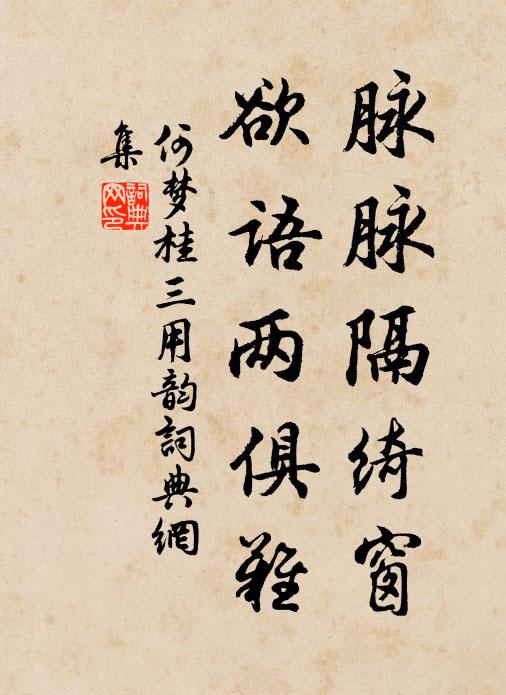 脉脉隔绮窗
欲语两俱难
何梦桂三用韵詞典網
集
詞典网印